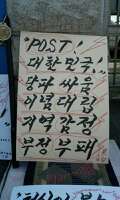 POST!
대한민국!
당파싸움
이념대립
지역감정
부정부패